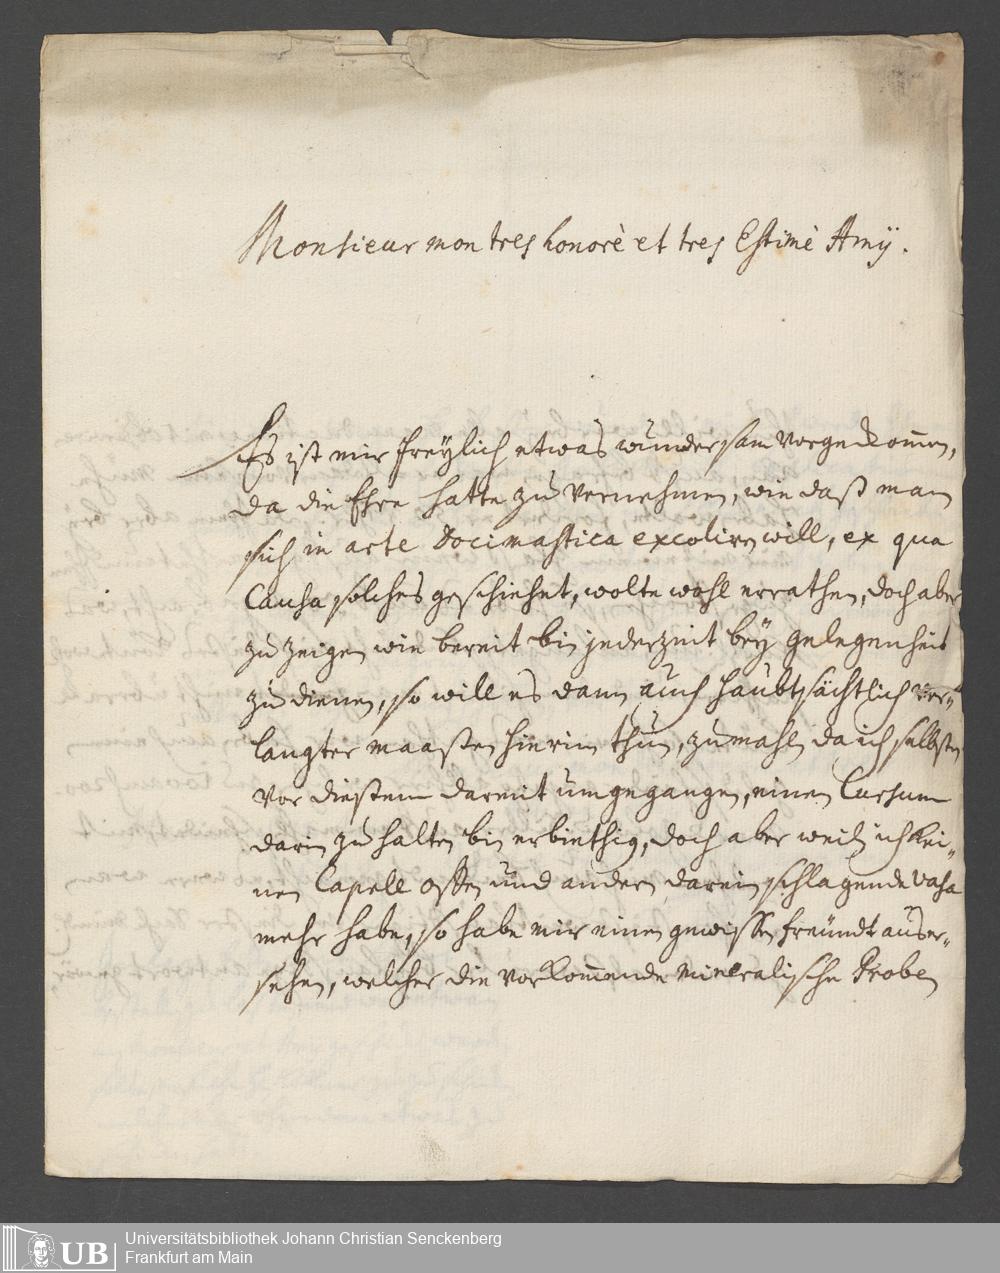 Monsieur mon tres honorè et tres Estimè Amÿ.
Es ist mir freÿlich etwas wundersam vorgekom̄en,
da die Ehre hatte zu vernehmen, wie daß man
sich in arte Docimastica excoliren will, ex qua
Causa solches geschiehet, wolte wohl errathen, doch aber
zu zeigen wie bereit bin jederzeit beÿ gelegenheit
zu dienen, so will es dann auch haubtsächtlich ver¬
langter maaßen hierin thun, zumahlen da ich selbsten
vor dießem darmit umgegangen, einen Cursum
darin zu halten bin erbiethig, doch aber weilen ich kei¬
nen Capell offen und andere darein schlagende Vasa
mehr habe, so habe mir einen gewissen freündt auser¬
sehen, welcher die vorkom̄ende mineralische Proben
UB
Universitätsbibliothek Johann Christian Senckenberg
Frankfurt am Main